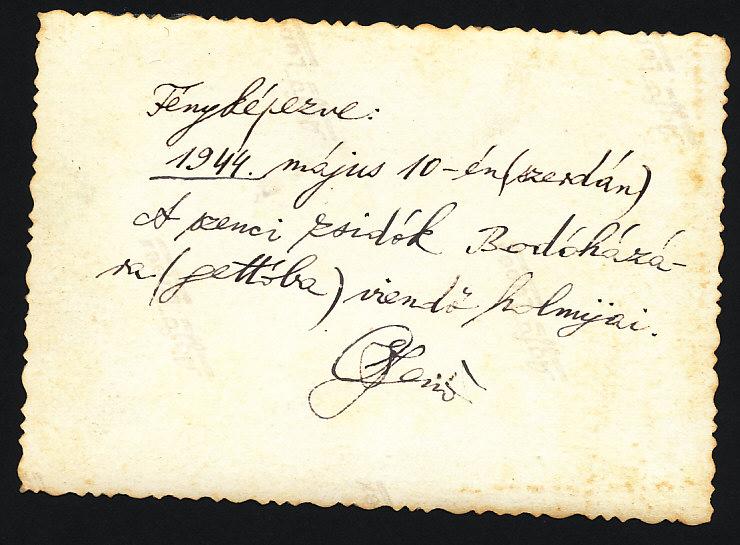 Fényképezve:
1944. május 10-én (szerdán)
A szenci zsidók Bodóházá-
ra (gettóba) viendő holmijai.
Jenő